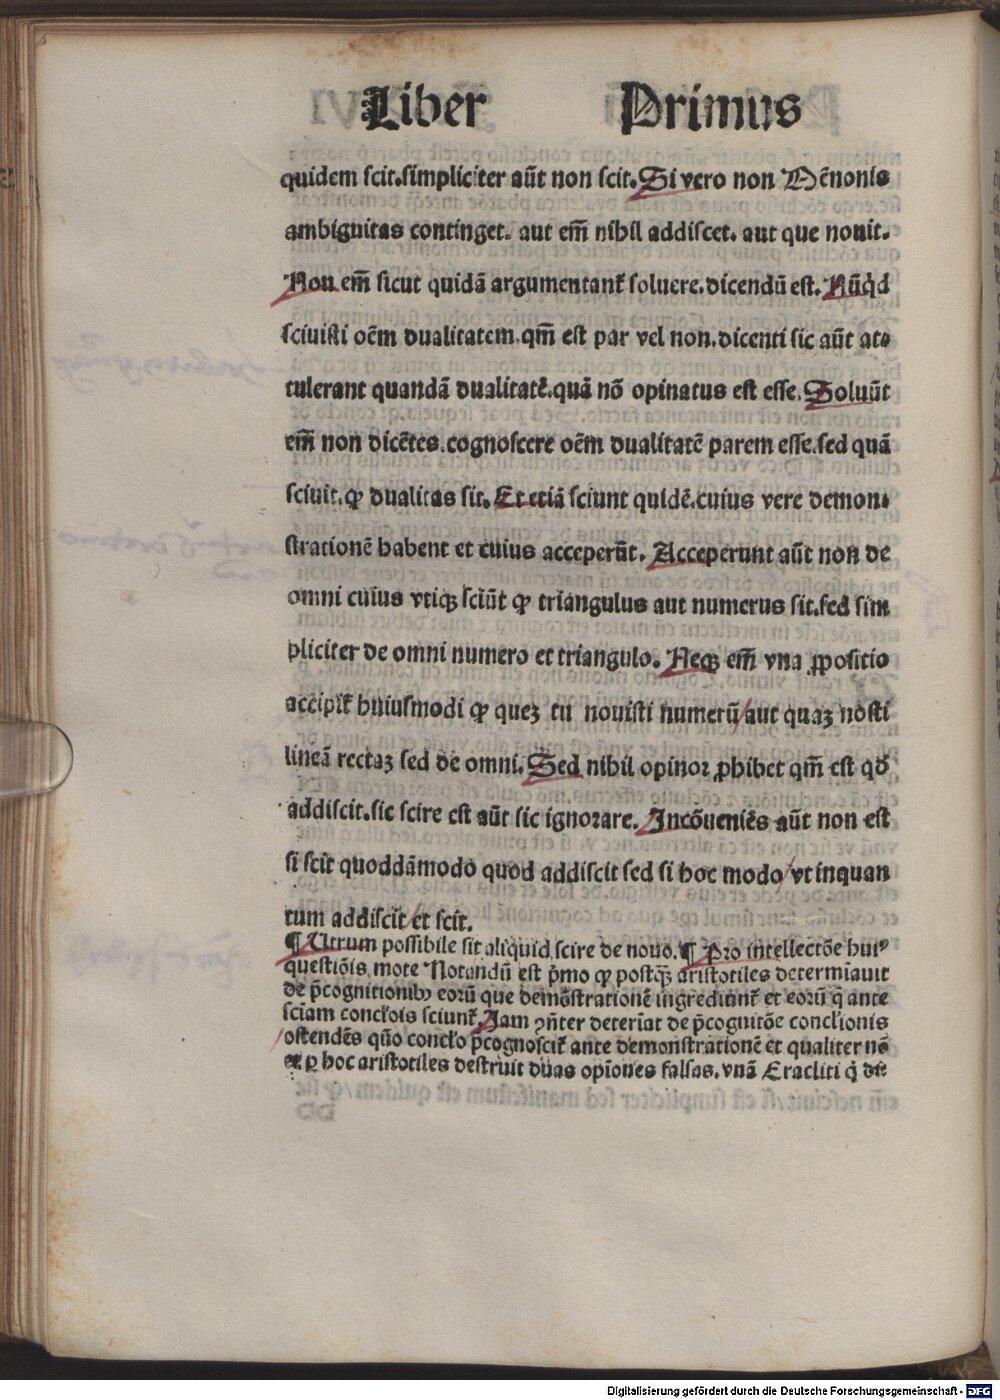 Liber Primus
quidem scit.simpliciter aūt non scit.Si vero non Mēnonis
ambiguitas continget. aut em̄ nihil addiscet. aut que nouit.
Non em̄ sicut quidā argumentant᷑ soluere.dicendū est. Nūq̇d
sciuisti oēm dualitatem.qm̄ est par vel non.dicenti sic aūt at⸗
tulerant quandā dualitatē.quā nō opinatus est esse. Soluūt
em̄ non dicētes.cognoscere oēm dualitatē parem esse.sed quā
sciuit.ꝙ dualitas sit. Et etiā sciunt quidē.cuius vere demon⸗
strationē habent et cuius acceperūt. Acceperunt aūt non de
omni cuius vtiqꝫ sciūt ꝙ triangulus aut numerus sit.sed sim
pliciter de omni numero et triangulo. Neqꝫ em̄ vna ꝓpositio
accipit᷑ huiusmodi ꝙ queꝫ tu nouisti numerū/aut quaꝫ nosti
lineā rectaꝫ sed de omni. Sed nihil opinor ꝓhibet qm̄ est qd̄
addiscit.sic scire est aūt sic ignorare. Incōueniēs aūt non est
si scit quoddāmodo quod addiscit sed si hoc modo/vt inquan
tum addiscit/et scit.
¶ Utrum possibile sit aliquid scire de nouo. ¶ Pro intellectōe huiꝰ
questiōis mote Notandū est p̄mo ꝙ postqꝫ̄ aristotiles determīauit
de p̄cognitionibꝫ eorū que demōstrationē ingrediunt᷑ et eorū q̄ ante
sciam conclōis sciunt᷑. Jam ꝯn̄ter deterīat de p̄cognitōe conclionis
ostendēs quō conclō p̄cognoscit᷑ ante demonstrationē et qualiter nō
et ꝑ hoc aristotiles destruit duas opiones falsas. vnā Eracliti q̇ di⸗
Digitalisierung gefördert durch die Deutsche Forschungsgemeinschaft - DFG